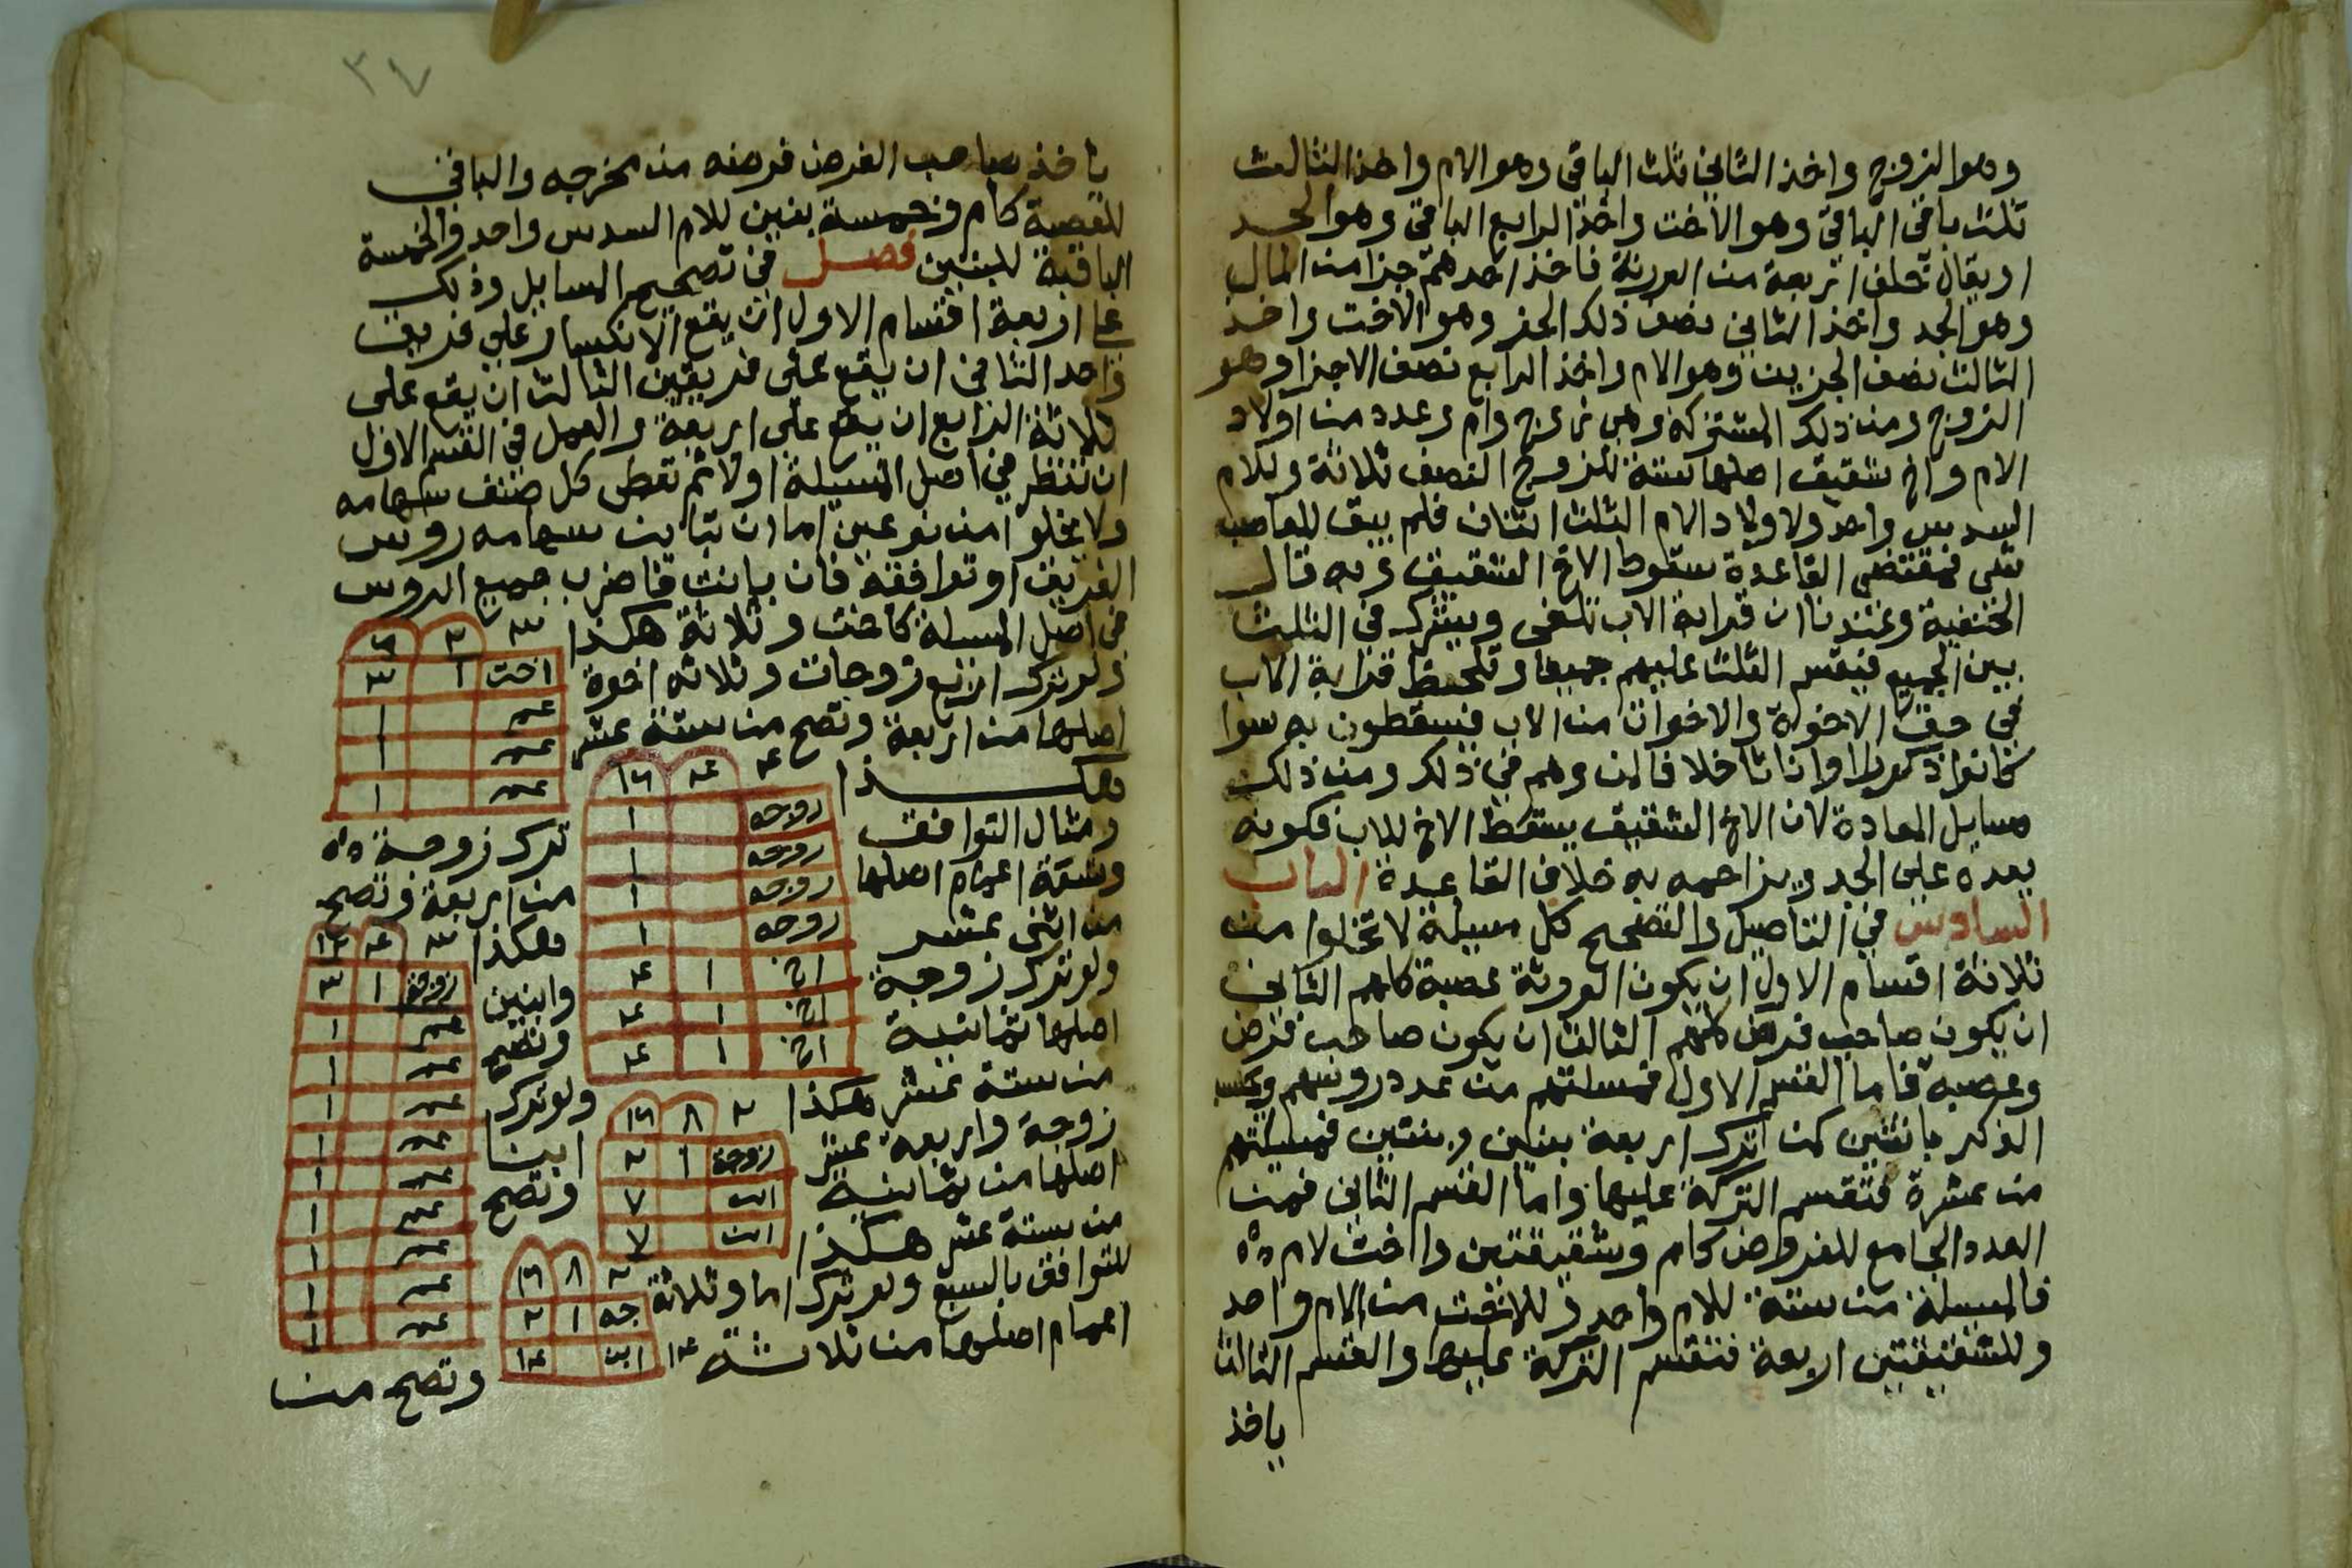 وهو الزوج واخذ الثاني ثلث الباقي وهو الام واخذ الثالث
ثلث باقي الباقي وهو الاخت واخذ الرابع الباقي وهو الجد
او يقال تخلف اربعة من الورثة فاخذ احدهم جزا من المال
وهو الجد واخذ الثاني نصف ذلك الجز وهو الاخت واخذ
الثالث نصف الجزين وهو الام واخذ الرابع نصف الاجزا وهو
الزوج ومن ذلك المشتركة وهي زوج وام وعدد من اولاد
الام واخ شقيق اصلها ستة للزوج النصف ثلاثة وللام
السدس واحد ولاولاد الام الثلث اثنان فلم يبق للعاصب
شي فمقتضي القاعدة سقوط الاخ الشقيق وبه قال
الحنفية وعندنا ان قرابة الاب تلغى ويشترك في الثلث
بين الجميع فيقسم الثلث عليهم جميعا وتلحظ قرابة الاب
في حق الاخوة والاخوات من الاب فيسقطون به سوا
كانوا ذكورا او اناثا خلافا لمن وهم في ذلك ومن ذلك
مسايل المعادة لان الاخ الشقيق يسقط الاخ للاب فكونه
يعده على الجد ويزاحمه به خلاف القاعدة الباب
السادس في التاصيل والتصحيح كل مسيلة لا تخلوا من
ثلاثة اقسام الاول ان يكون الورثة عصبة كلهم الثاني
ان يكون صاحب فرض كلهم الثالث ان يكون صاحب فرض
وعصبة فاما القسم الاول فمسلتهم من عدد روسهم
الذكر بانثيين كمن اترك اربعة بنين وبنتين فمسيلتهم
من عشرة فتقسم التركة عليها واما القسم الثاني فمن
العدد الجامع للفروض كام وشقيقتين واخت لام
فالمسيلة من ستة للام واحد وللاخت من الام واحد
وللشقيقتين اربعة فتقسم التركة عليها والقسم الثالث
ياخذ
٣٤
ياخذ صاحب الفرض فرضه من مخرجه والباقي
للعصبة كام وخمسة بنين للام السدس واحد والخمسة
الباقية للبنين فصل في تصحيح المسايل وذلك
على اربعة اقسام الاول ان يقع الانكسار على فريق
واحد الثاني ان يقع على فريقين الثالث ان يقع على
ثلاثة الرابع ان يقع على اربعة والعمل في القسم الاول
ان تنظر في اصل المسيلة اولا ثم تعطى كل صنف سهامه
ولا يخلوا من نوعين اما ان تباين سهامه روس
الفريق او توافقه فان باينت فاضرب جميع الروس
في اصل المسيلة كاخت وثلاثة هكذا
ولو ترك اربع زوجات وثلاثة اخوة
اصلها من اربعة وتصح من ستة عشر
هكذا
٣ ٢ ٦
اخت ١ ٣
عم ١
عم ١
عم ١
٤ ٤ ١٦
زوجه ١
زوجه ١
زوجه ١
زوجه ١
اخ ١ ٤
اخ ١ ٤
اخ ١ ٤
ومثال التوافق ترك زوجة
وتسعة اعمام اصلها من اربعة وتصح
من اثنى عشر هكذا
ولو ترك زوجة وابنين
اصلها ثمانية وتصح
من ستة عشر هكذا ولو ترك
زوجة واربعة عشر ابنا
اصلها من ثمانية وتصح
من ستة عشر هكذا
٣ ٤ ١٢
زوجة ١ ٣
عم ١
عم ١
عم ١
عم ١
عم ١
عم ١
عم ١
عم ١
عم ١
٢ ٨ ١٦
زوجة ١ ٢
ابن ٧
ابن ٧
٢ ٨ ١٦
جه ١ ٢
١٤ ابن ١٤
للتوافق بالسبع ولو ترك اما وثلاثة
اعمام اصلها من ثلاثة
وتصح من